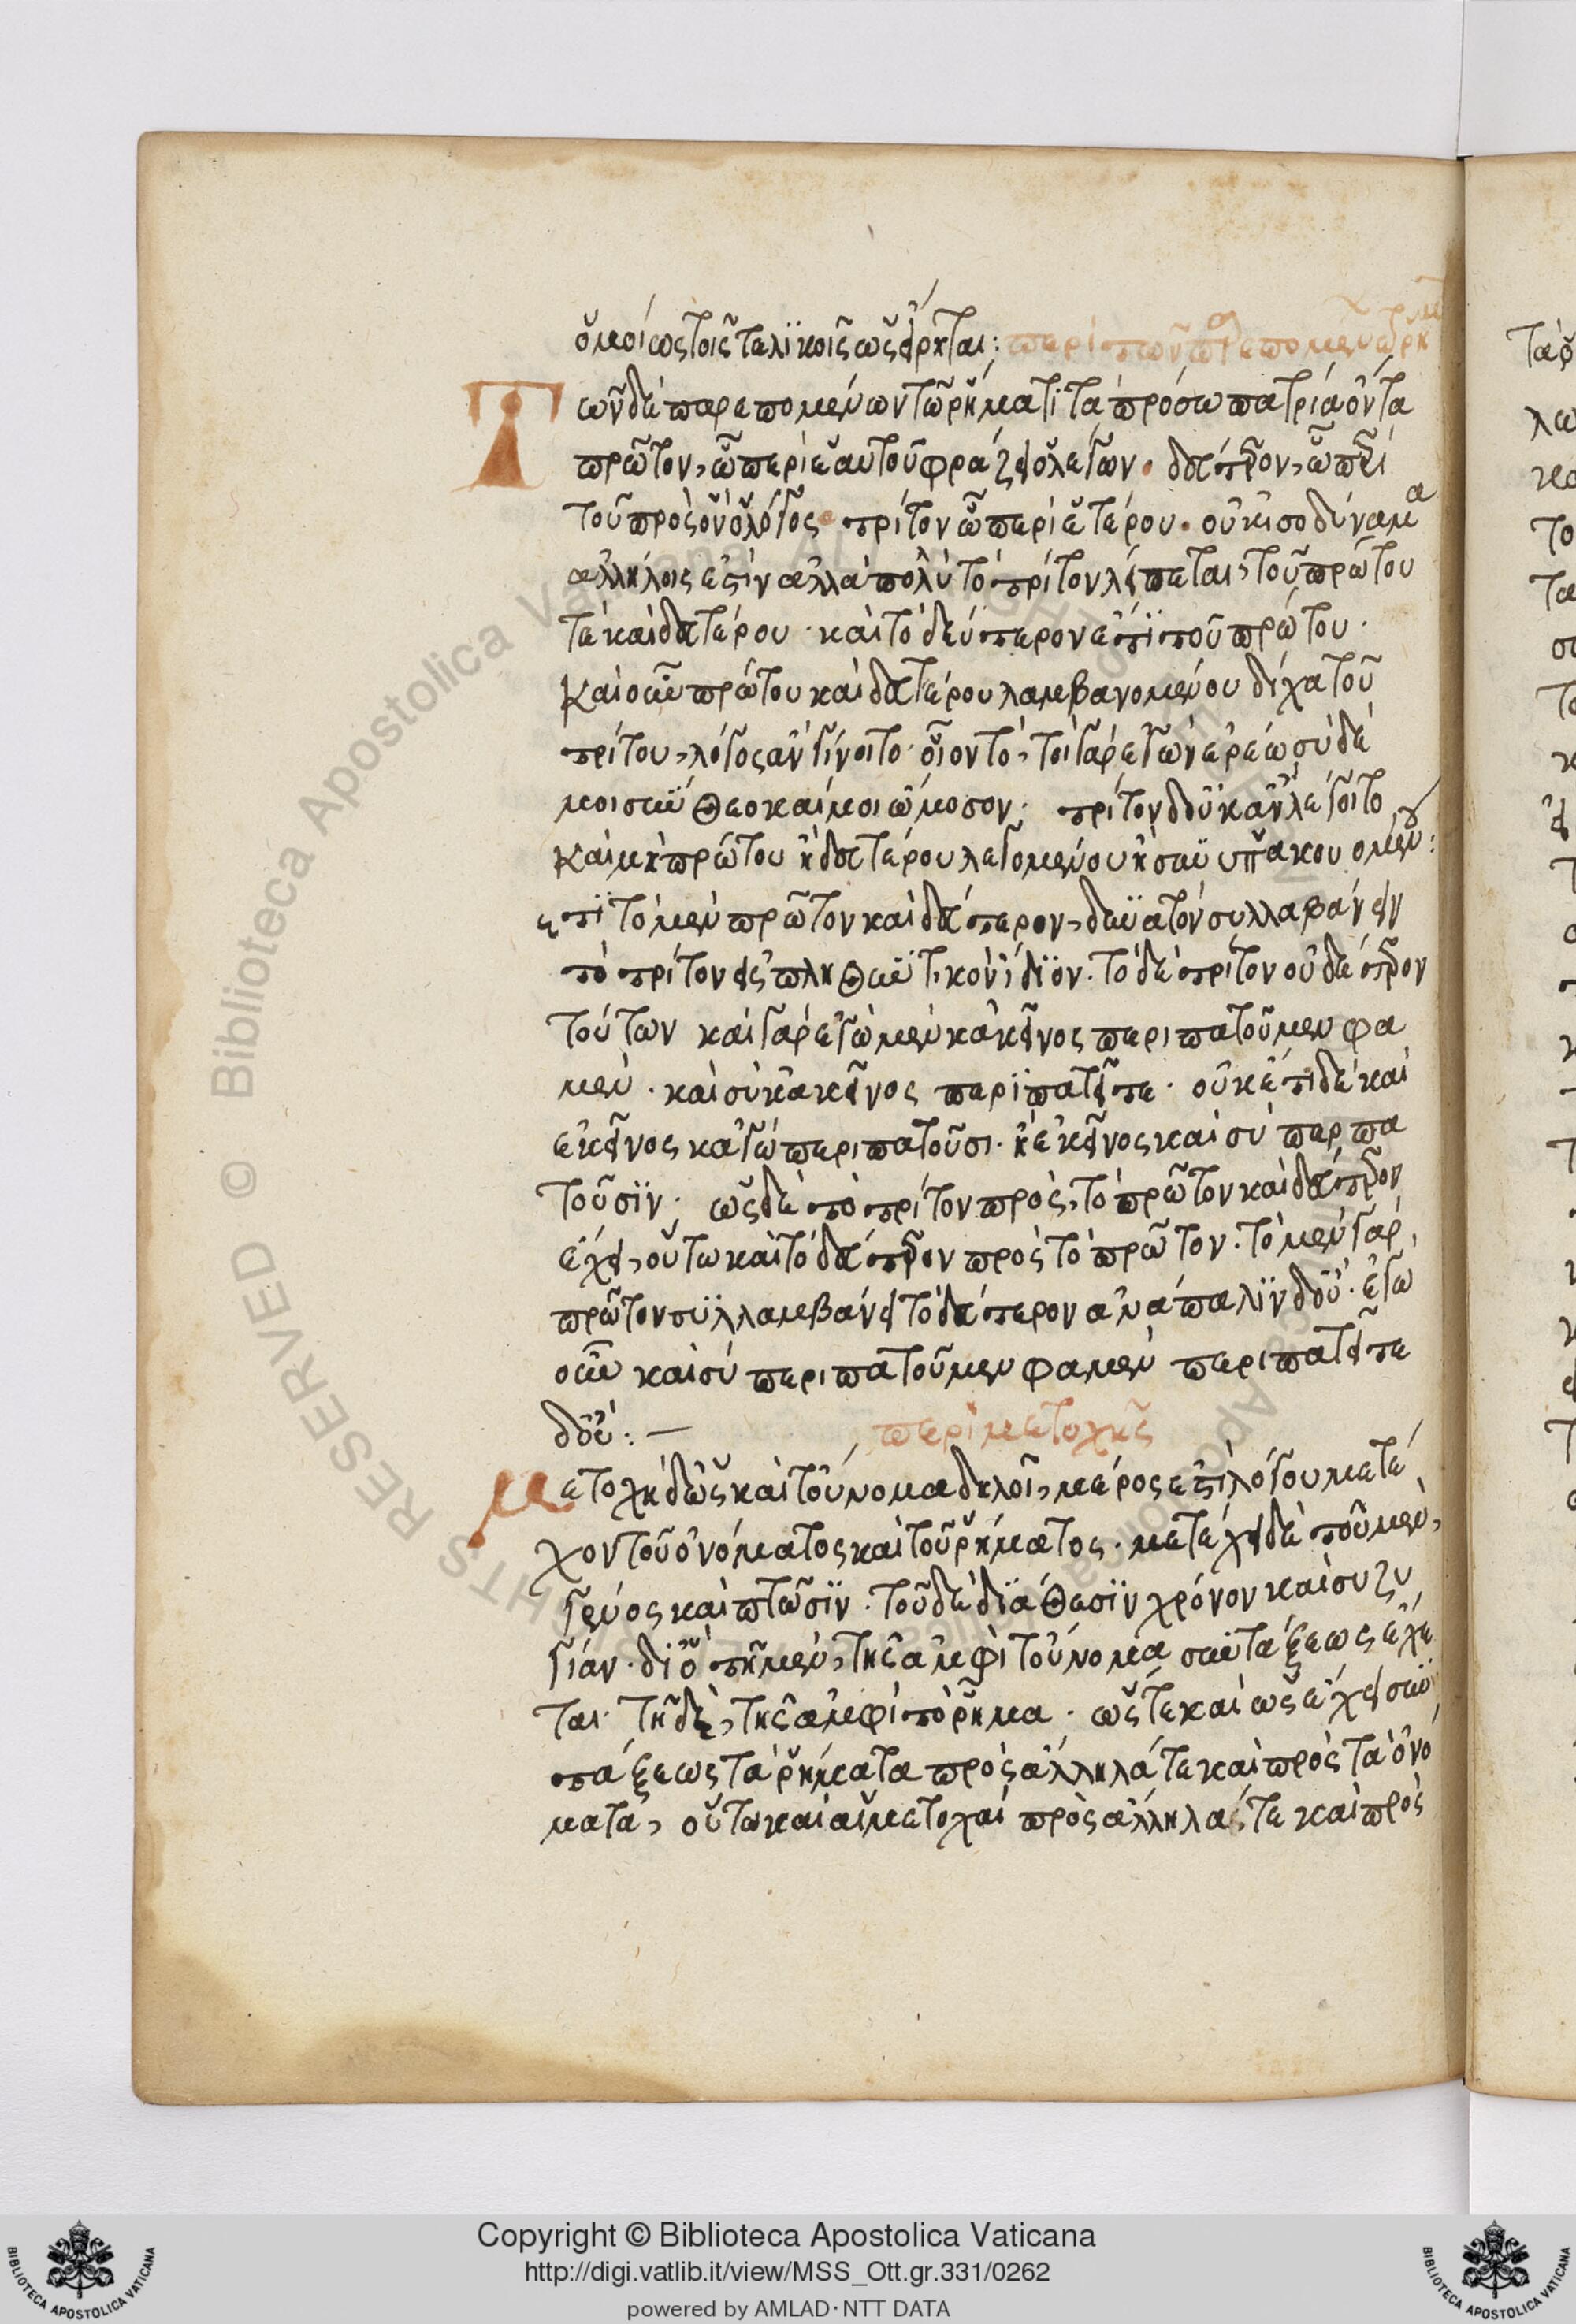 ὁμοίως τοῖς τελικοῖς ὡς εἴρηται: περὶ τῶν παρεπομένων τῶ ῥήματι
Τῶν δὲ παρεπομένων τῶ ῥήματι τὰ πρόσωπα τρία ὄντα
πρῶτον, ὧ περὶ ἑαυτοῦ φράζει ὁ λέγων. δεύτερον, ὧ περὶ
τοῦ πρὸς ὃν ὁ λόγος τρίτον ὧ περὶ ἑτέρου. οὐκ ἰσοδύναμα
ἀλλήλοις ἐστὶν ἀλλὰ πολὺ τὸ τρίτον λείπεται, τοῦ πρώτου
τὲ καὶ δευτέρου. καὶ τὸ δεύτερον ἐπὶ τοῦ πρώτου.
καὶ οὖν πρώτου καὶ δευτέρου λαμβανομένου δίχα τοῦ
τρίτου, λόγος ἂν γίνοιτο. οἷον τὸ, τοὶ γὰρ ἐγὼν ἐρέω σὺ δὲ
μοι σύνθεο καί μοι ὤμοσον. τρίτον δ' οὐκ ἂν λέγοιτο
καὶ μὴ πρώτου ἢ δευτέρου λεγομένου ἢ συνυπακουομένου:
ἔτι τὸ μὲν πρῶτον καὶ δεύτερον, δυνατὸν συλλαβάνειν
τὸ τρίτον εἰς πληθυντικὸν ἴδιον. τὸ δὲ τρίτον οὐδέτερον
τούτων καὶ γὰρ ἐγὼ μὲν κἀκεῖνος περιπατοῦμεν φα
μέν. καὶ σὺ κἀκεῖνος περιπατεῖτε. οὐκέτι δὲ καὶ
ἐκεῖνος κἀγὼ περιπατοῦσι. ἢ ἐκεῖνος καὶ σὺ περπα
τοῦσιν. ὡς δὲ τὸ τρίτον πρὸς, τὸ πρῶτον καὶ δεύτερον
ἔχει, οὕτω καὶ τὸ δεύτερον πρὸς τὸ πρῶτον. τὸ μὲν γὰρ
πρῶτον συλλαμβάνει τὸ δεύτερον ἀνάπαλιν δ' οὔ. ἐγὼ
οὖν καὶ σὺ περιπατοῦμεν φαμὲν περιπατεῖτε
δ' οὔ: — περὶ μετοχῆς
Μετοχὴ δ' ὡς καὶ τοὔνομα δηλοῖ, μέρος ἐστὶ λόγου μετέ
χον τοῦ ὀνόματος καὶ τοῦ ῥήματος. μετέχει δὲ τοῦ μὲν,
γένος καὶ πτῶσιν. τοῦ δὲ διάθεσιν χρόνον καὶ συζυ
γίαν. διὸ πῆ μὲν, τῆς ἀμφὶ τοὔνομα συντάξεως ἔχε
ται. τῆ δὲ, τῆς ἀμφὶ τὸ ῥῆμα. ὥς τε καὶ ὡς ἔχει συν
τάξεως τὰ ῥήματα πρὸς ἄλληλά τε καὶ πρὸς τὰ ὀνό
ματα, οὕτω καὶ αἱ μετοχαὶ πρὸς ἀλλήλας τε καὶ πρὸς
Copyright © Biblioteca Apostolica Vaticana
http://digi.vatlib.it/view/MSS_Ott.gr.331/0262
powered by AMLAD·NTT DATA